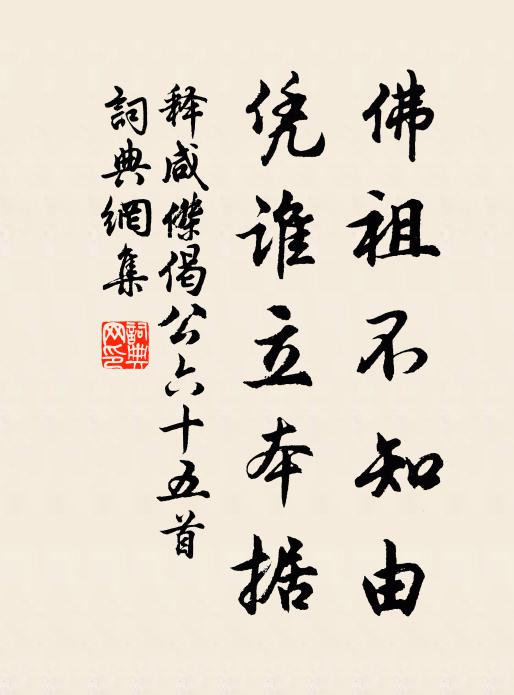 佛祖不知由
凭谁立本据
释咸傑偈公六十五首
詞典網集
詞典网印